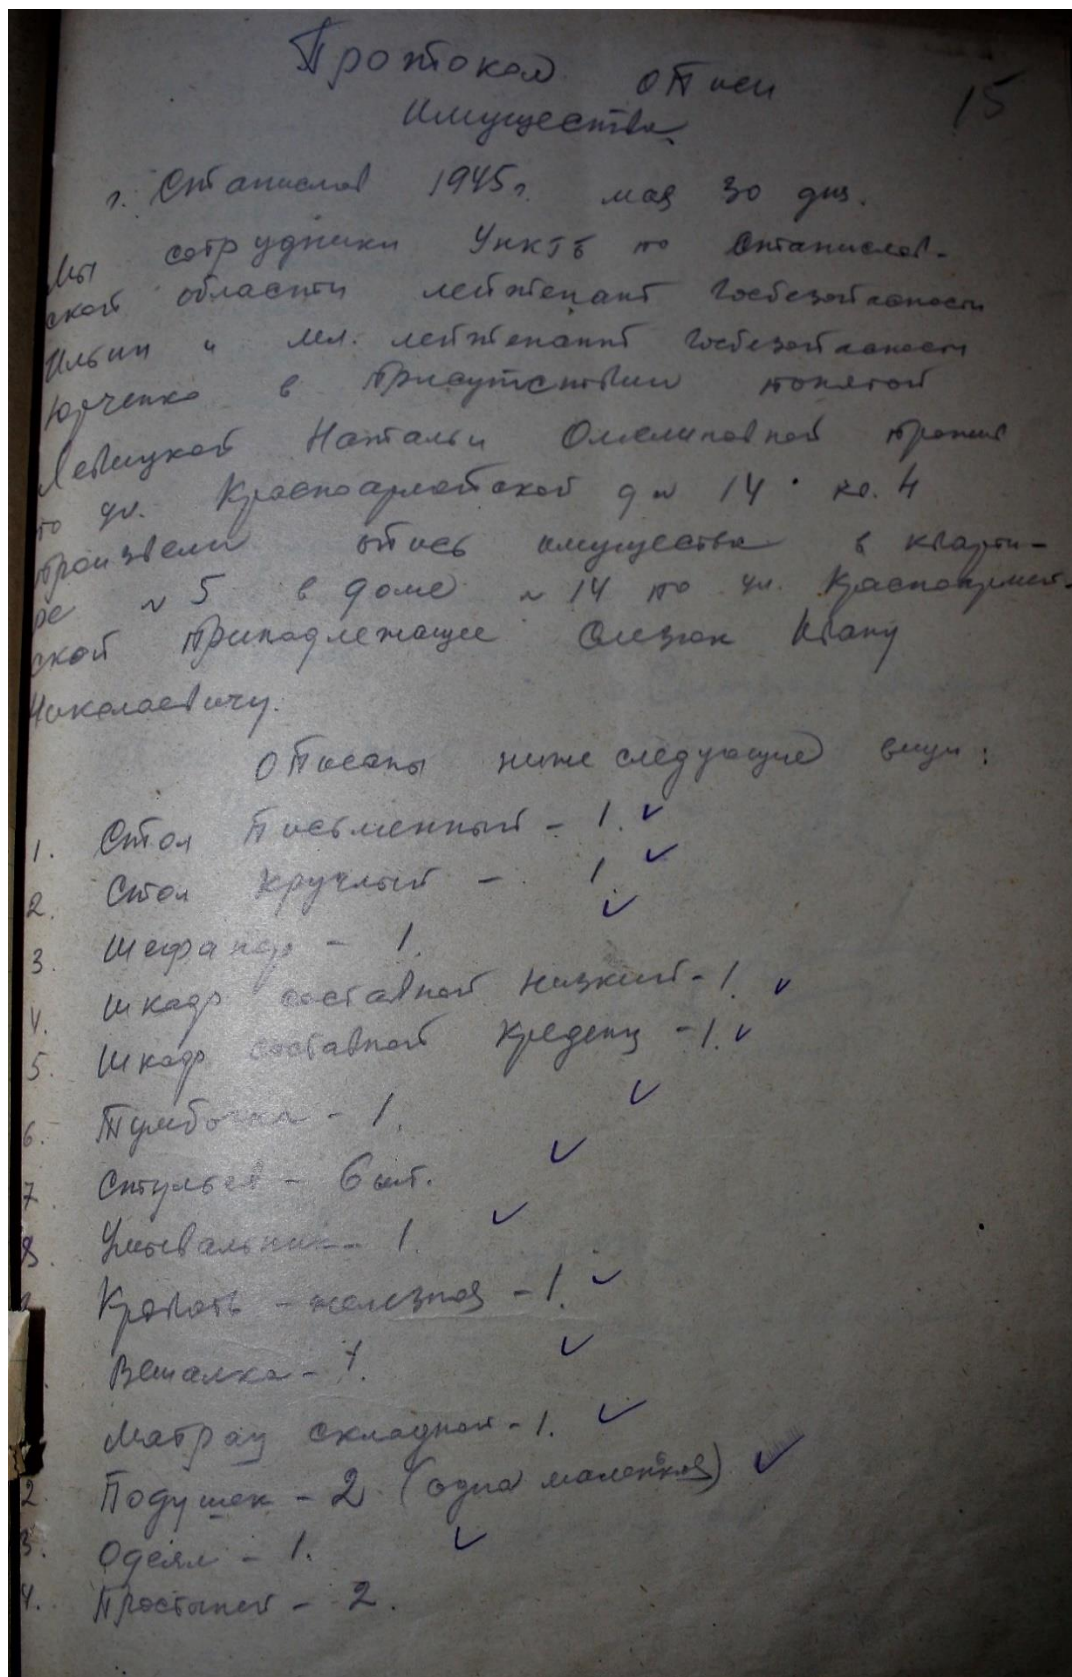 Протокол описи
15
имущества.
г. Станислав 1945 г. мая 30 дня.
Мы сотрудники УНКГБ по Станислав-
ской области лейтенант Госбезопасности
Ильин и мл. лейтенант Госбезопасности
Юрченко в присутствии понятой
Левицкой Натальи Омелиновной прожив
по ул. Красноармейской д № 14 кв. 4
произвели опись имущества в кварти-
ре № 5 в доме № 14 по ул. Красноармей-
ской принадлежащее Ивану
Николаевичу.
Описаны ниже следующие вещи:
1. Стол письменный - 1.
2. Стол круглый - 1
3. Шефанер - 1.
4. Шкаф составной низкий - 1.
5. Шкаф составной креденц - 1.
6. Тумбочка - 1.
7. Стульев - 6 шт.
8. Умывальник - 1.
Кровать - железная - 1.
Вешалка - 1.
Матрац складной - 1.
2. Подушек - 2 (одна маленкая)
3. Одеял - 1.
4. Простыней - 2.